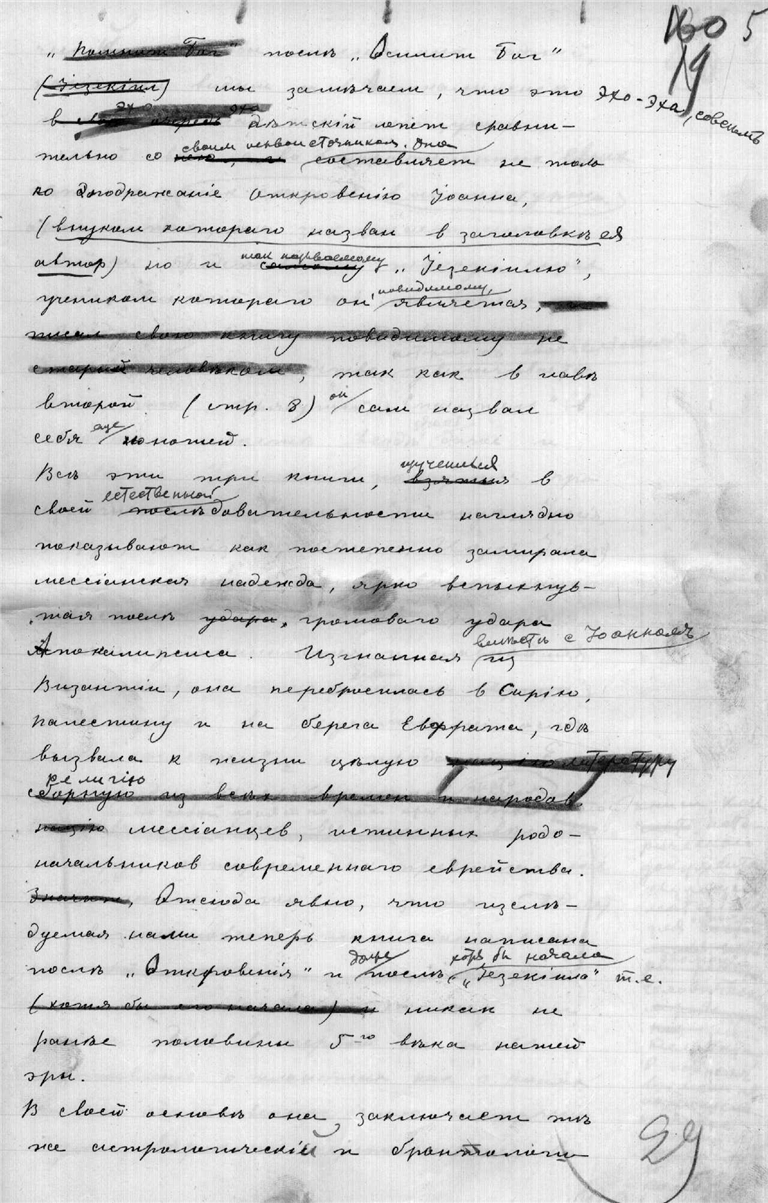 160 5
19
„Помнит Бог“ послѣ „Осилит Бог“
(Іезекіил) мы замѣчаем, что это эхо-эха, совсѣмъ
дѣтскій лепет сравни-
тельно со своим первоисточником. Она составляет не толь
ко подражаніе Откровенію Іоанна,
(внуком котораго назван в заголовкѣ ея
автор) но и так называемому „Іезекіилю“,
учеником котораго он, повидимому, является,
писал свою книгу повидимому не
старым человѣком, так как в главѣ
второй (стр. 8) он сам назвал
себя еще юношей.
Всѣ эти три книги, изученныя в
своей естественной послѣдовательности наглядно
показывают как постепенно замирала
мессіанская надежда, ярко вспыхнув-
шая послѣ удара, громоваго удара
Апокалипсиса. Изгнанная вмѣстѣ с Іоанномъ из
Византіи, она перебросилась в Сирію,
Палестину и на берега Евфрата, гдѣ
вызвала к жизни цѣлую литературу
религію
сборную из всѣх времен и народов
націю мессіанцев, истинных родо-
начальников современнаго еврейства.
Значит, Отсюда явно, что изслѣ-
дуемая нами теперь книга написана
послѣ „Откровенія“ и даже послѣ хотя бы начала „Іезекіила“ т.е.
(хотя бы его начала) и никак не
ранѣе половины 5-го вѣка нашей
эры.
В своей основѣ она заключает тѣ
же астрологическій и бронтологи
29